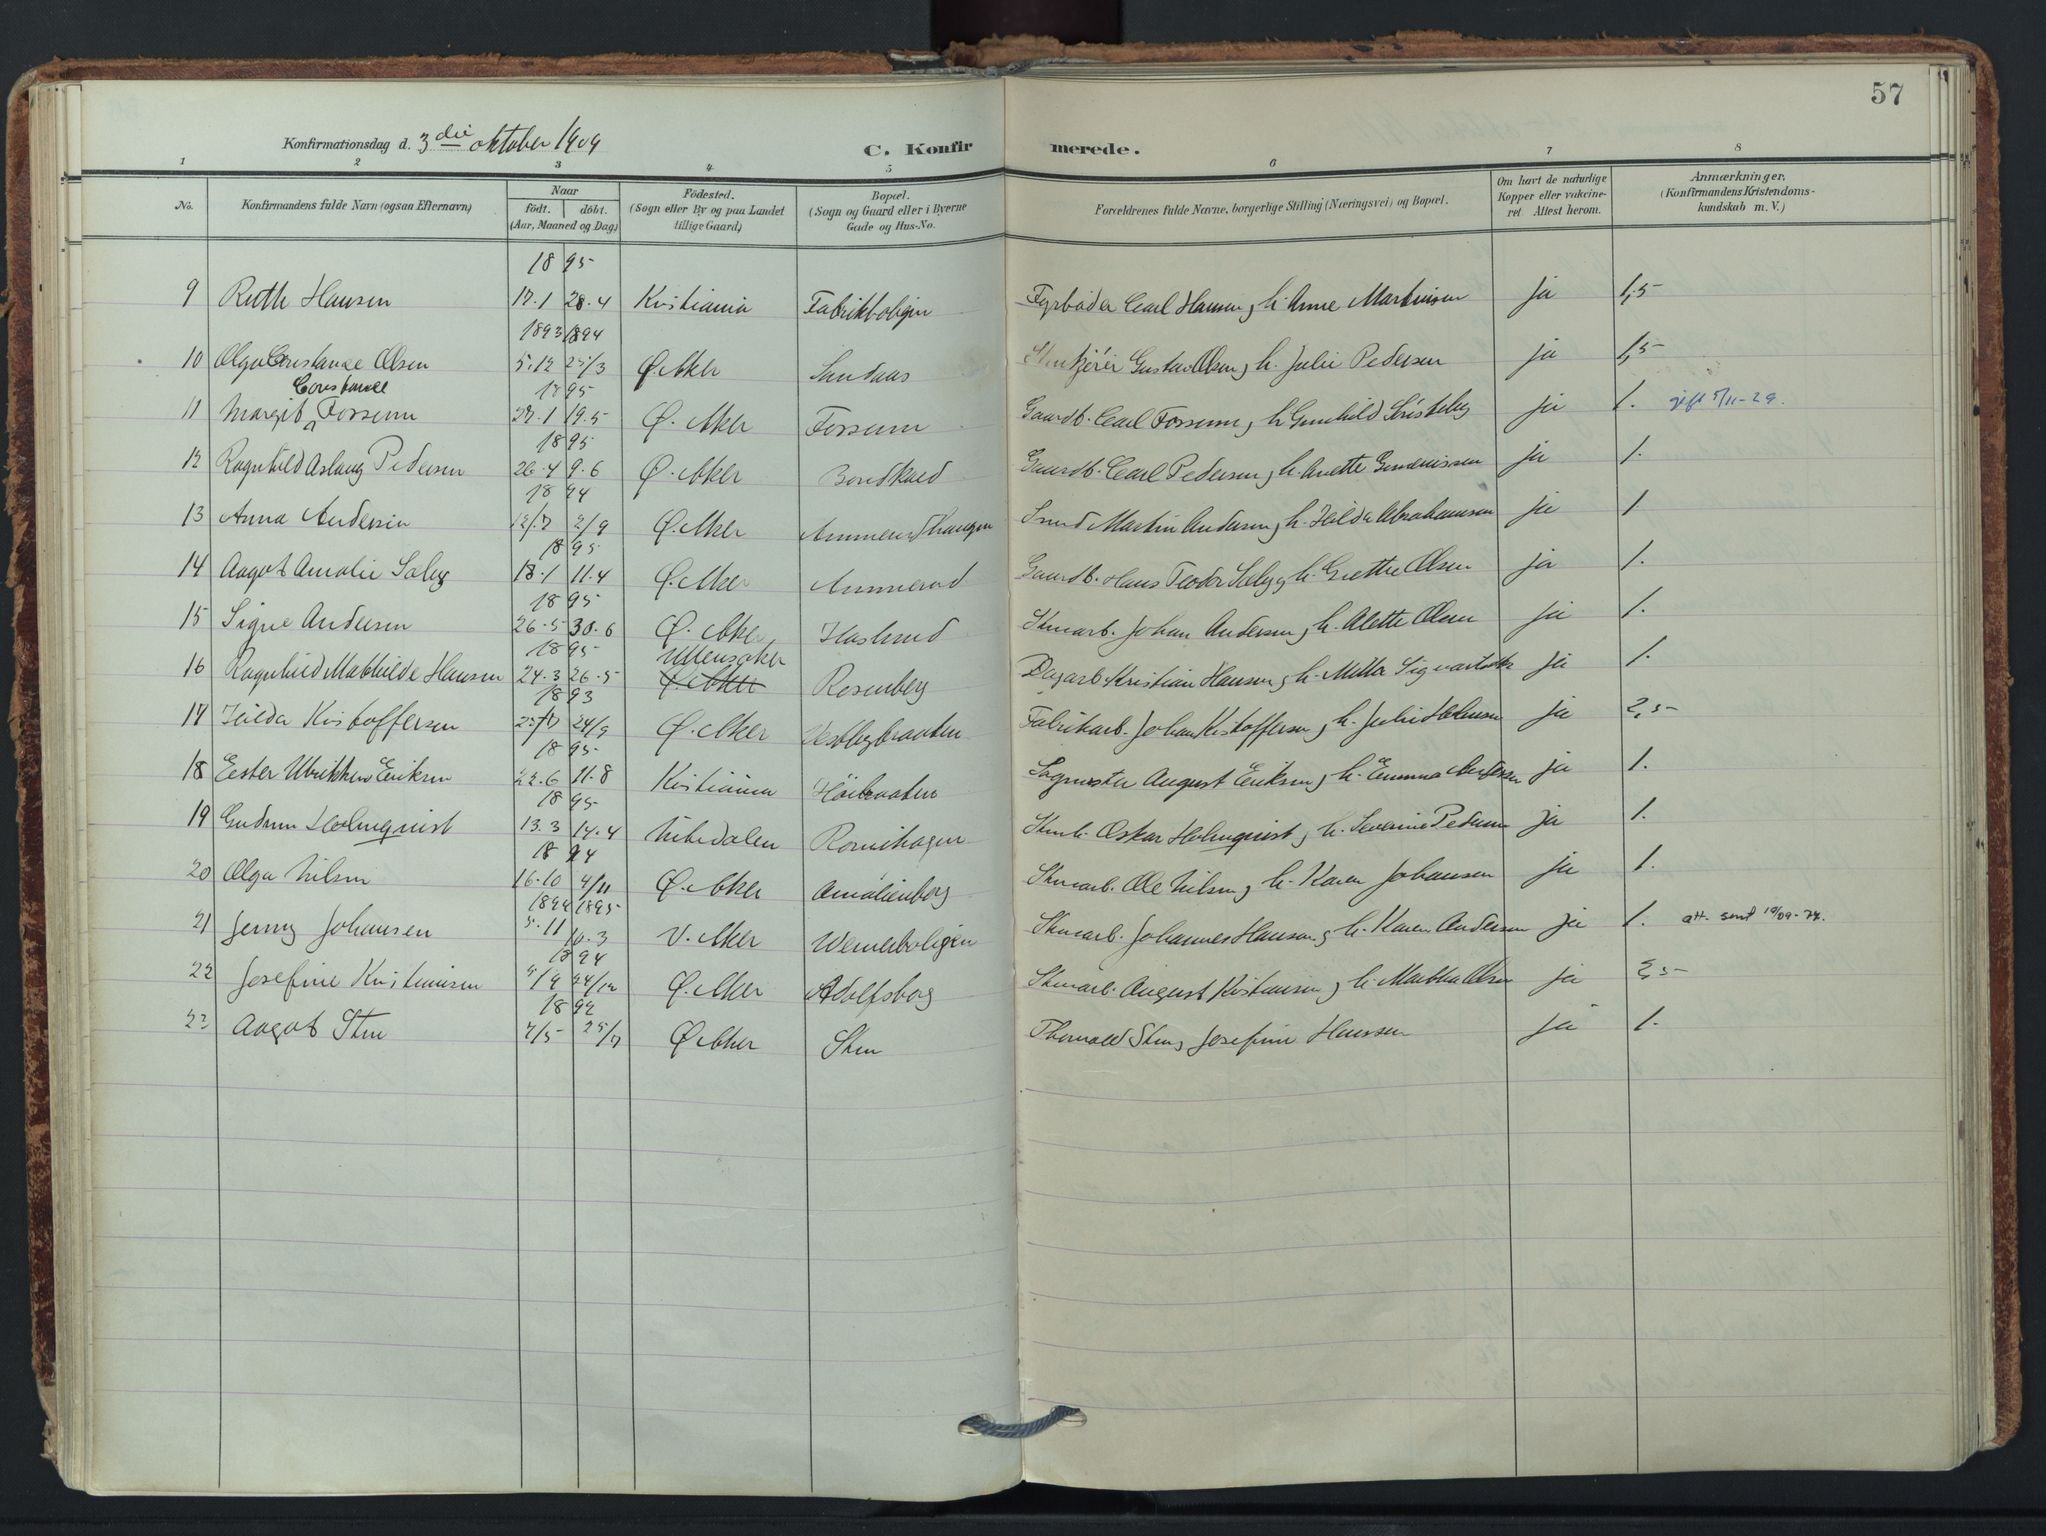 57
Konfirmationsdag d. 3 die oktober 1909
C. Konfirmerede.
1 2 3 4 5 6 7 8
No.
Konfirmandens fulde Navn (ogsaa Efternavn)
Naar
født. døbt.
(Aar, Maaned og Dag)
Fødested.
(Sogn eller By og paa Landet
tillige Gaard)
Bopæl.
(Sogn og Gaard eller i Byerne
Gade og Hus-No.
Forældrenes fulde Navne, borgerlige Stilling (Næringsvei) og Bopæl.
Om havt de naturlige
Kopper eller vakcine-
ret. Attest herom.
Anmærkninger.
(Konfirmandens Kristendoms-
kundskab m. V.)
1895
9 Ruth Hansen 17.1 28.4 Kristiania Fabrikboligen Fyrbøder Carl Hansen, h. Anne Martinsen ja 1,5
1893 1894
10 Olga Constanse Olsen 5.12 25/3 Ø. Aker Sandaas Gustav Olsen, h. Julie Pedersen ja 1,5
Constanse
1895
11 Margit Fossum 27.1 19.5 Ø. Aker Fossum Gaardb. Carl Fossum, h. Gunhild ja 1. gift 5/11-29.
1895
12 Ragnhild Aslaug Pedersen 26.4 9.6 Ø. Aker Gaardb. Carl Pedersen, h. Anette ja 1.
1894
13 Anna Andersen 12/7 2/9 Ø. Aker Ammerudhaugen Smed Martin Andersen, h. Hilda Abrahamsen ja 1.
1895
14 Aagot Amalie Saby 18.1 11.4 Ø. Aker Ammerud Gaardb. Hans Teodor Saby, h. Grethe Olsen ja 1.
1895
15 Signe Andersen 26.5 30.6 Ø. Aker Haslund Stenarb. Johan Andersen, h. Alette Olsen ja 1.
1895
Ullensaker
16 Ragnhild Mathilde Hansen 24.3 26.5 Ø. Aker Rosenberg Dagarb. Kristian Hansen, h. Milla ja 1.
1893
17 Hilda Kristoffersen 25/7 24/9 Ø. Aker Vestbybraaten Fabrikarb. Johan Kristoffersen, h. Julie ja 2,5
1895
18 Ester Eriksen 22.6 11.8 Kristiania Høibraaten Sagmester August Eriksen, h. Emma Andersen ja 1.
1895
19 Gudrun Holmquist 13.3 14.4 Nitedalen Romihagen Oskar Holmquist, h. Severine Pedersen ja 1.
1894
20 Olga Nilsen 16.10 4/11 Ø. Aker Amalienborg Stenarb. Ole Nilsen, h. Karen Johansen ja 1.
1894 1895
21 Jenny Johansen 5.11 10.3 V. Aker Wernerboligen Stenarb. Johannes Hansen, h. Karen Andersen ja 1. att. sent 19/09-74.
1894
22 Josefine Kristiansen 9/9 24/12 Ø. Aker Adolfsborg Stenarb. August Kristiansen, h. Martha Olsen ja 2,5
23 Aagot Sten 7/5 25/7 Ø. Aker Sten Thorvald Sten, Josefine Hansen ja 1.